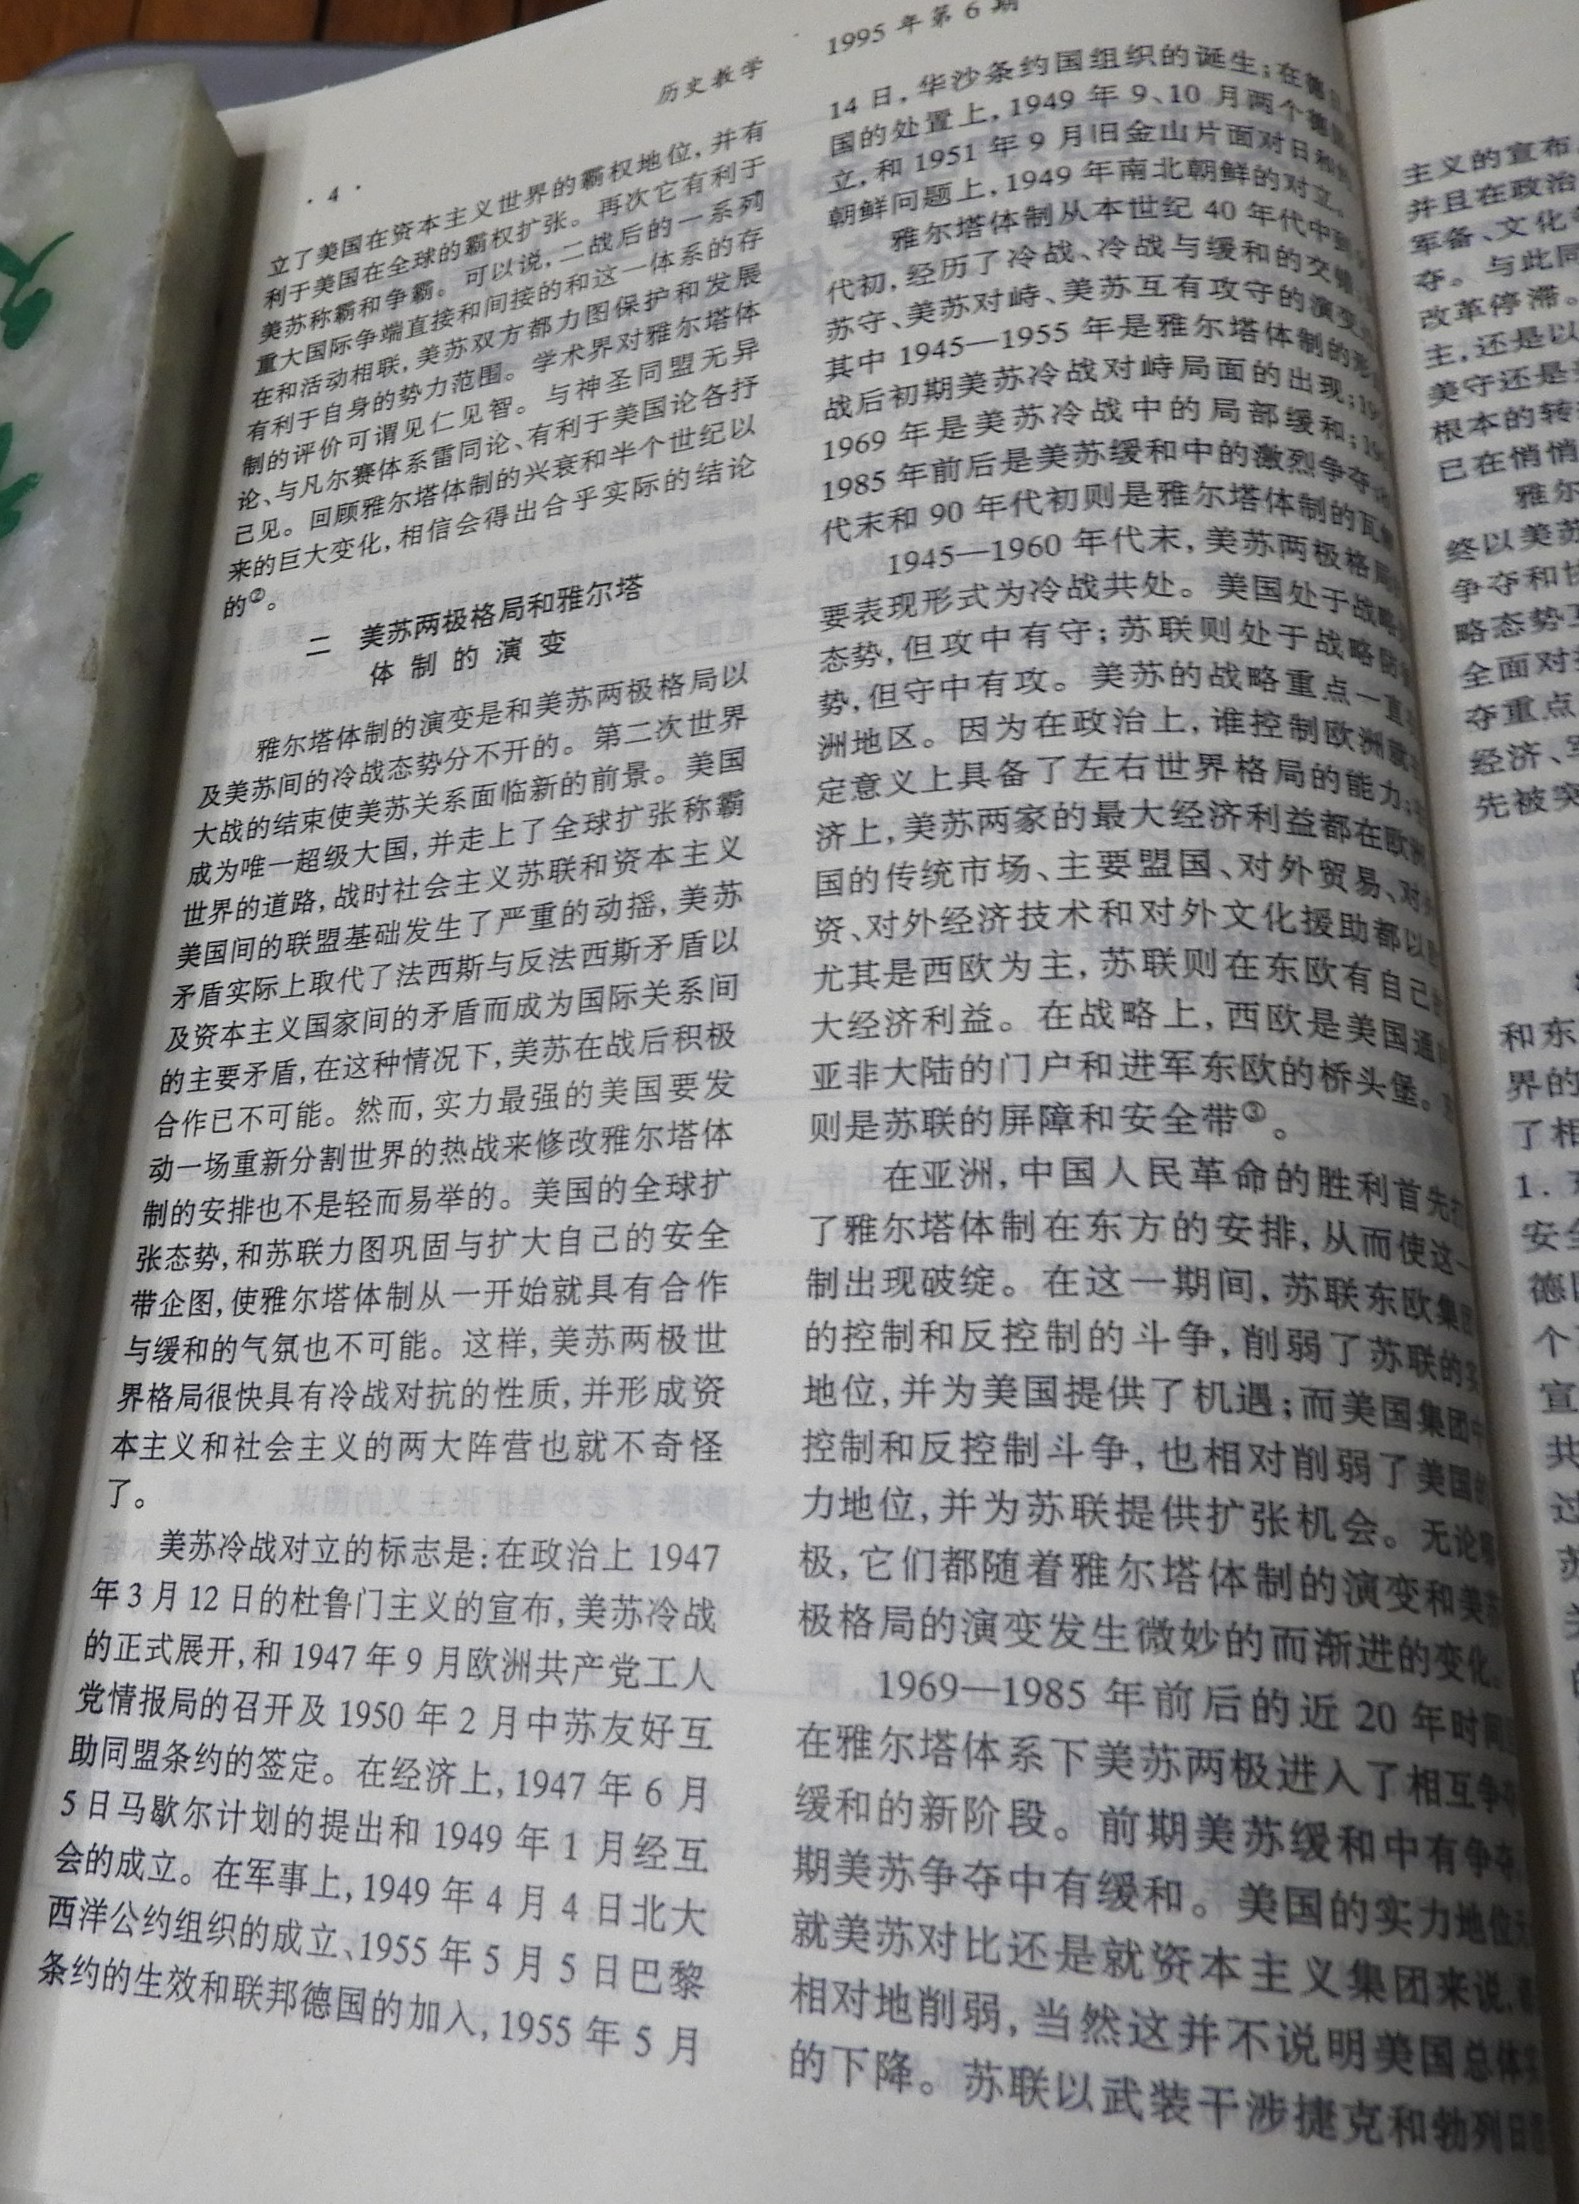 ·4·
历史教学
1995 年第 6 期
立了美国在资本主义世界的霸权地位,并有
利于美国在全球的霸权扩张。再次它有利于
美苏称霸和争霸。可以说,二战后的一系列
重大国际争端直接和间接的和这一体系的存
在和活动相联,美苏双方都力图保护和发展
有利于自身的势力范围。学术界对雅尔塔体
制的评价可谓见仁见智。与神圣同盟无异
论、与凡尔赛体系雷同论、有利于美国论各抒
己见。回顾雅尔塔体制的兴衰和半个世纪以
来的巨大变化,相信会得出合乎实际的结论
的②。
二 美苏两极格局和雅尔塔
体制的演变
雅尔塔体制的演变是和美苏两极格局以
及美苏间的冷战态势分不开的。第二次世界
大战的结束使美苏关系面临新的前景。美国
成为唯一超级大国,并走上了全球扩张称霸
世界的道路,战时社会主义苏联和资本主义
美国间的联盟基础发生了严重的动摇,美苏
矛盾实际上取代了法西斯与反法西斯矛盾以
及资本主义国家间的矛盾而成为国际关系间
的主要矛盾,在这种情况下,美苏在战后积极
合作已不可能。然而,实力最强的美国要发
动一场重新分割世界的热战来修改雅尔塔体
制的安排也不是轻而易举的。美国的全球扩
张态势,和苏联力图巩固与扩大自己的安全
带企图,使雅尔塔体制从一开始就具有合作
与缓和的气氛也不可能。这样,美苏两极世
界格局很快具有冷战对抗的性质,并形成资
本主义和社会主义的两大阵营也就不奇怪
了。
美苏冷战对立的标志是:在政治上 1947
年 3 月 12 日的杜鲁门主义的宣布,美苏冷战
的正式展开,和 1947 年 9 月欧洲共产党工人
党情报局的召开及 1950 年 2 月中苏友好互
助同盟条约的签定。在经济上,1947 年 6 月
5 日马歇尔计划的提出和 1949 年 1 月经互
会的成立。在军事上,1949 年 4 月 4 日北大
西洋公约组织的成立、1955 年 5 月 5 日巴黎
条约的生效和联邦德国的加入,1955 年 5 月
14 日,华沙条约国组织的诞生;在德
国的处置上,1949 年 9、10 月两个德
立,和 1951 年 9 月旧金山片面对日和
朝鲜问题上,1949 年南北朝鲜的对立。
雅尔塔体制从本世纪 40 年代中
代初,经历了冷战、冷战与缓和的交
苏守、美苏对峙、美苏互有攻守的演变
其中 1945—1955 年是雅尔塔体制的形
战后初期美苏冷战对峙局面的出现;
1969 年是美苏冷战中的局部缓和;
1985 年前后是美苏缓和中的激烈争夺
代末和 90 年代初则是雅尔塔体制的瓦
1945—1960 年代末,美苏两极格局
要表现形式为冷战共处。美国处于战略
态势,但攻中有守;苏联则处于战略防
势,但守中有攻。美苏的战略重点一直
洲地区。因为在政治上,谁控制欧洲就
定意义上具备了左右世界格局的能力;
济上,美苏两家的最大经济利益都在欧洲
国的传统市场、主要盟国、对外贸易、对外
资、对外经济技术和对外文化援助都以
尤其是西欧为主,苏联则在东欧有自己
大经济利益。在战略上,西欧是美国通
亚非大陆的门户和进军东欧的桥头堡。
则是苏联的屏障和安全带③。
在亚洲,中国人民革命的胜利首先
了雅尔塔体制在东方的安排,从而使这一
制出现破绽。在这一期间,苏联东欧集团
的控制和反控制的斗争,削弱了苏联的
地位,并为美国提供了机遇;而美国集团中
控制和反控制斗争,也相对削弱了美国
力地位,并为苏联提供扩张机会。无论
极,它们都随着雅尔塔体制的演变和美苏
极格局的演变发生微妙的而渐进的变化。
1969—1985 年前后的近 20 年时间
在雅尔塔体系下美苏两极进入了相互争夺
缓和的新阶段。前期美苏缓和中有争夺
期美苏争夺中有缓和。美国的实力地位
就美苏对比还是就资本主义集团来说,
相对地削弱,当然这并不说明美国总体
的下降。苏联以武装干涉捷克和勃列日
主义的宣布
并且在政治
军备、文化
夺。与此同
改革停滞。
主,还是以
美守还是
根本的转
已在悄悄
雅尔
终以美苏
争夺和
略态势
全面对
夺重点
经济、
先被突
和东
界的
了相
1.
安全
德
个
宣
共
过